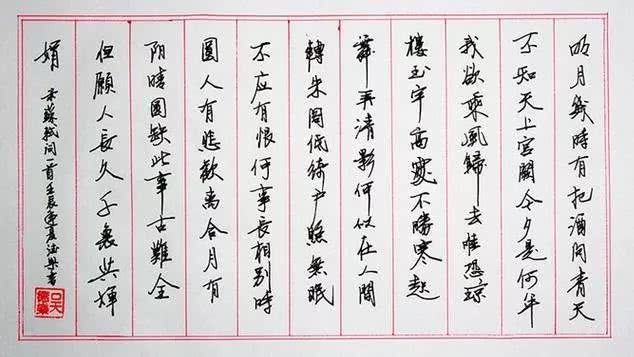 明月幾時有把酒問青天
不知天上宮闕今夕是何年
我欲乘風歸去唯恐琼
樓玉宇高處不勝寒起
舞弄清影何似在人間
轉朱閣低綺戶照無眠
不应有恨何事長相別時
圓人有悲歡离合月有
阴晴圓缺此事古難全
但願人長久千裏共嬋
娟 录蘇軾词一首壬辰夏樂書